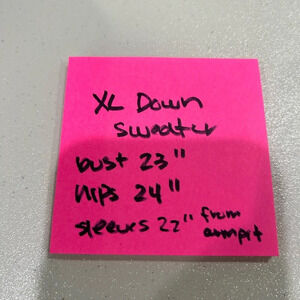 XL Down
sweater
bust 23"
hips 24"
sleeves 22" from
armpit